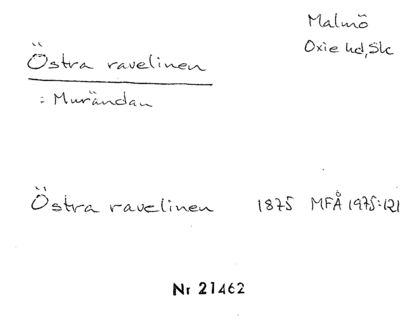 Malmö
Oxie hd, Sk
Östra ravelinen
: Murändan
Östra ravelinen 1875 MFÅ 1975:121
Nr 21462